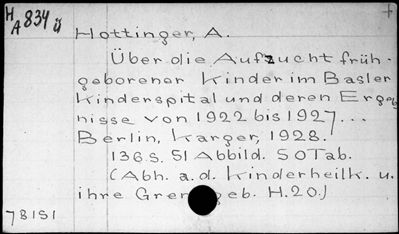 H
A 834 ü
Hottinger, A.
Über die Aufzucht früh-
geborener Kinder im Basler
Kinderspital und deren Ergeb
nisse von 1922 bis 1927...
Berlin, Karger, 1928.
136 S. 51 Abbild. 50 Tab.
(Abh. a. d. Kinderheilk. u.
ihre Gren geb. H. 20.)
78151